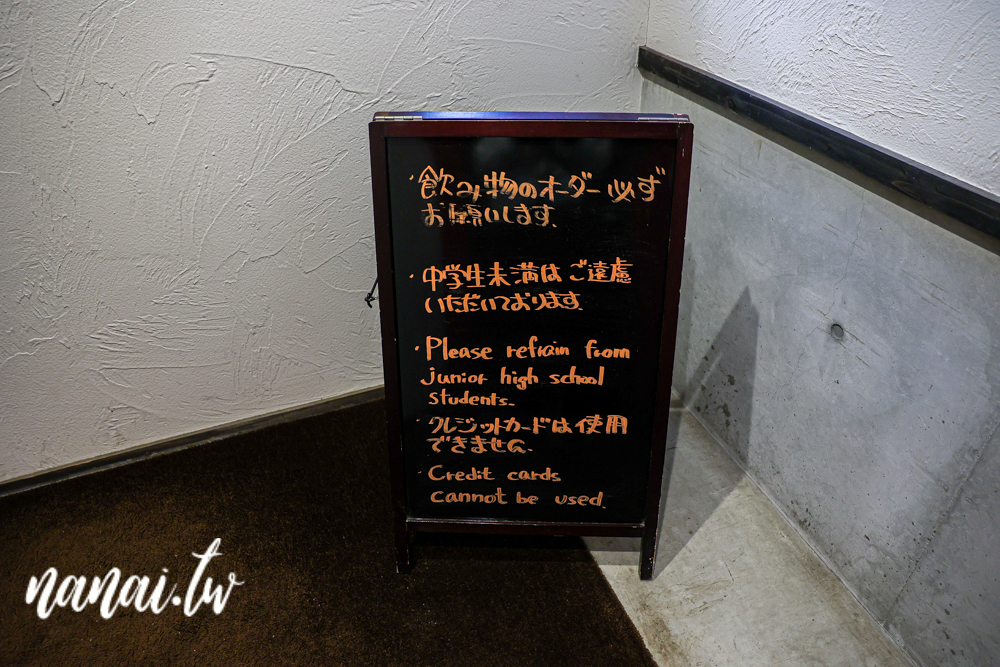 ・飲み物のオーダー必ず
お願いします。
・中学生未満はご遠慮
いただいております。
・Please refrain from
junior high school
students.
・クレジットカードは使用
できません。
・Credit cards
cannot be used.
nanai.tw